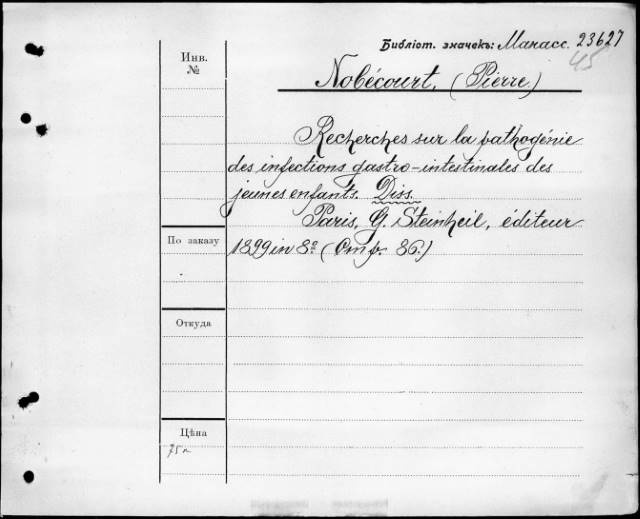 Библіот. значекъ: Манасс. 23627
45
Инв.
№
Nobécourt, (Pierre.)
Recherches sur la pathogénie
des infections gastro-intestinales des
jeunes enfants. Diss.
Paris, G. Steinheil, éditeur
По заказу
1899 in 8º (Стр. 86.)
Откуда
Цѣна